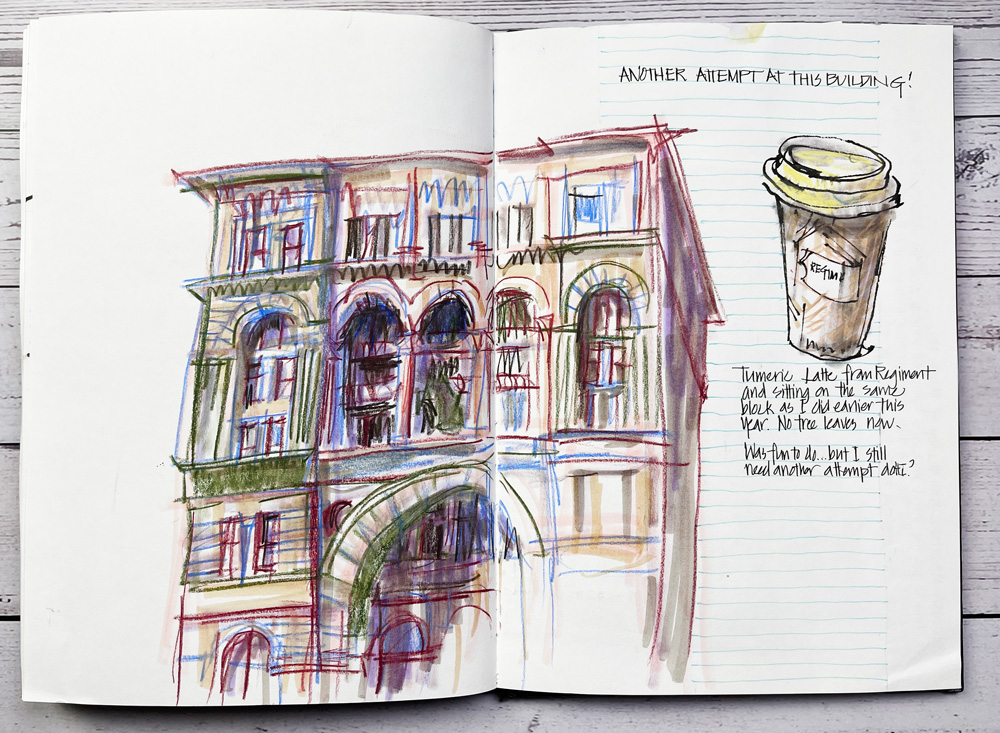 ANOTHER ATTEMPT AT THIS BUILDING!
REGIME
Tumeric Latte from Regiment
and sitting on the same
block as I did earlier this
year. No tree leaves now.
Was fun to do...but I still
need another attempt